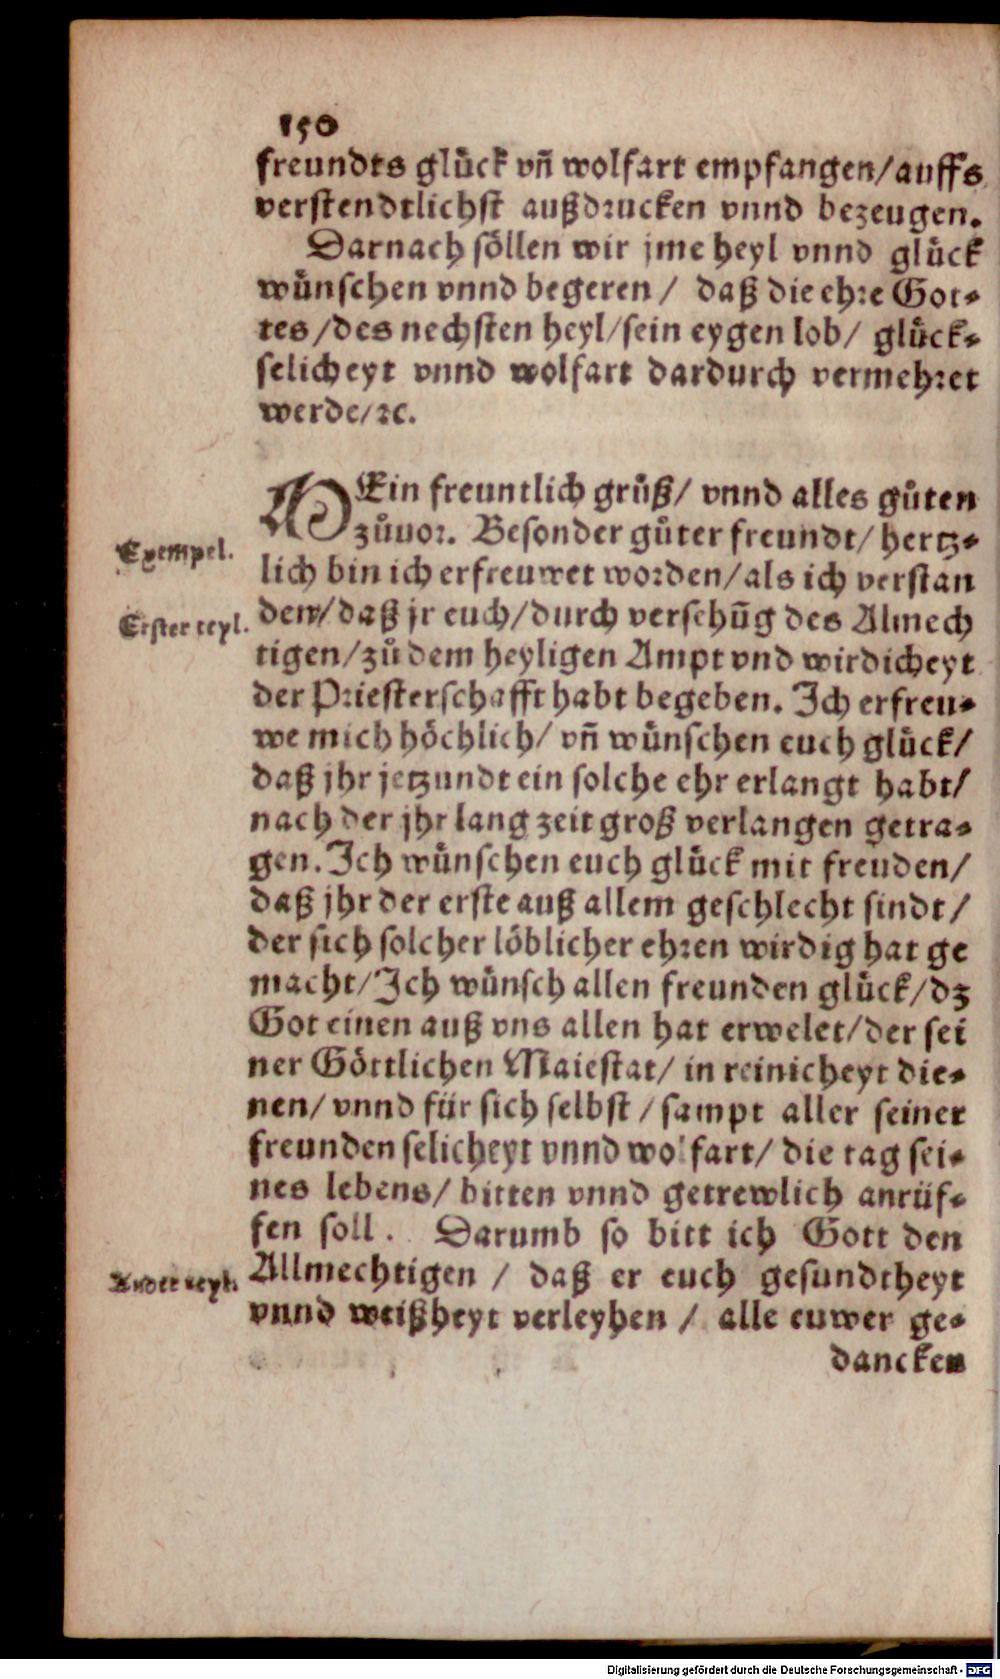 150
freundts glück vñ wolfart empfangen/auffs
verstendtlichst außdrucken vnnd bezeugen.
Darnach söllen wir jme heyl vnnd glück
wünschen vnnd begeren / daß die ehre Got-
tes /des nechsten heyl/sein eygen lob/ glück-
selicheyt vnnd wolfart dardurch vermehret
werde/ꝛc.
MEin freuntlich grůß/ vnnd alles gůten
zůuor. Besonder gůter freundt/ hertz-
Exempel.
lich bin ich erfreuwet worden/als ich verstan
Erster teyl.
den/daß jr euch/durch versehũg des Almech
tigen/zů dem heyligen Ampt vnd wirdicheyt
der Priesterschafft habt begeben. Ich erfreu-
we mich höchlich/ vñ wünschen euch glück/
daß jhr jetzundt ein solche ehr erlangt habt/
nach der jhr lang zeit groß verlangen getra-
gen. Ich wünschen euch glück mit freuden/
daß jhr der erste auß allem geschlecht sindt/
der sich solcher löblicher ehren wirdig hat ge
macht/Ich wünsch allen freunden glück/dz
Got einen auß vns allen hat erwelet/der sei
ner Göttlichen Maiestat/ in reinicheyt die-
nen/ vnnd für sich selbst / sampt aller seiner
freunden selicheyt vnnd wolfart/ die tag sei-
nes lebens/ bitten vnnd getrewlich anrüf-
fen soll. Darumb so bitt ich Gott den
Ander teyl.
Allmechtigen / daß er euch gesundtheyt
vnnd weißheyt verleyhen / alle euwer ge-
dancken
Digitalisierung gefördert durch die Deutsche Forschungsgemeinschaft - DFG